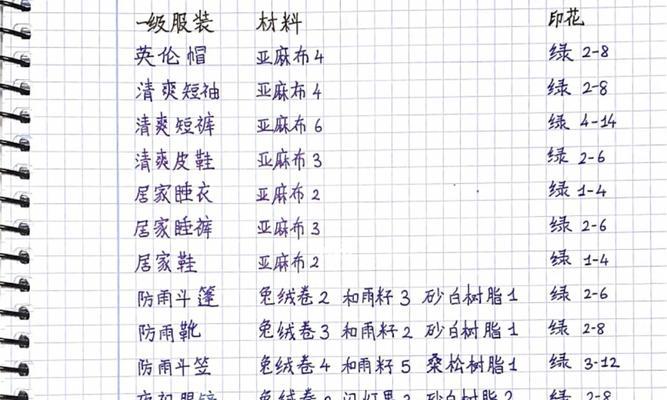 一级服装 材料 印花
英伦帽 亚麻布4 绿 2-8
清爽短袖 亚麻布4 绿 2-8
清爽短裤 亚麻布6 绿 4-14
清爽皮鞋 亚麻布3 绿 2-6
居家睡衣 亚麻布2 绿 1-4
居家睡裤 亚麻布3 绿 2-6
居家鞋 亚麻布2 绿 1-4
防雨斗篷 兔绒卷2 和雨籽3 砂白树脂1 绿 2-6
防雨靴 兔绒卷3 和雨籽2 砂白树脂1 绿 2-8
防雨斗笠 兔绒卷4 和雨籽5 桑松树脂1 绿 3-12